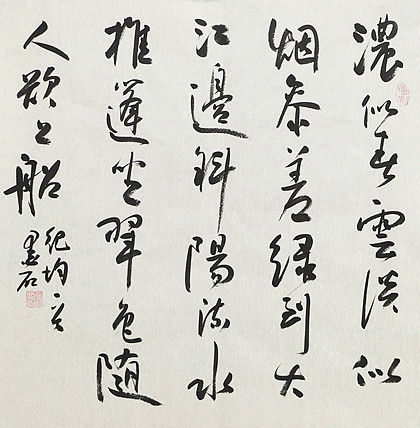 濃似春雲淡似
烟参差緑到大
江邊斜陽流水
推篷坐翠色随
人欲上船
紀均
墨石